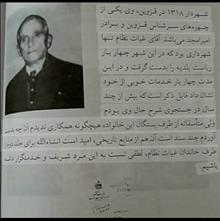 شهردار ۱۳۱۸ در قزوین، وی یکی از
چهره‌های سرشناس قزوین و برادر
امیرامجد می‌باشد آقای غیاث نظام تنها
شهرداری بود که در این شهر چهار بار
ریاست بلدیه را بدست گرفت و در این
مدت چهار بار خدمات خوبی از خود
نشان داد قابل ذکر است که بیش از چند
سال در جستجوی شرح حال وی بودم
ولی متأسفانه از طرف بستگان این خانواده هیچگونه همکاری ندیدم آن چه
آوردم چند سند است آن هم از منابع تاریخی، امید است انشاءالله برای جلد دوم از
طرف خاندان غیاث نظام، لطفی نسبت به این مرد شریف و خدمتگزار داشته
باشیم.